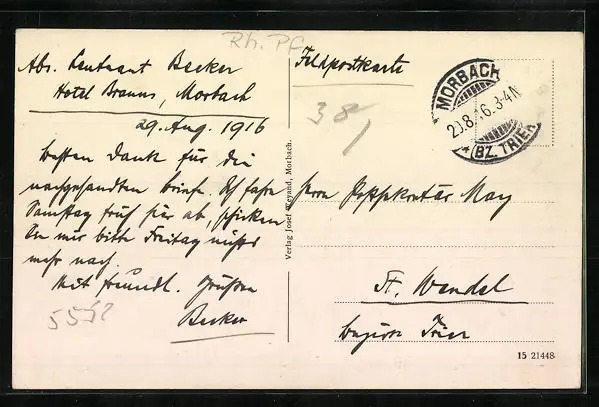 Rh. Pf.
Abs. Leutnant Becker
Hotel Brauns, Morbach
29. Aug. 1916
Besten Dank für die
nachgesandten Briefe. Ich fahre
Samstag früh hier ab, schicken
Sie mir bitte Freitag nichts
mehr nach.
Mit freundl. Grüßen
Becker
5512
Verlag Josef Weyand, Morbach.
Feldpostkarte
38
MORBACH
29.8.16.3-4N
(BZ. TRIER)
Herrn Postsekretär May
St. Wendel
Bezirk Trier
15 21448